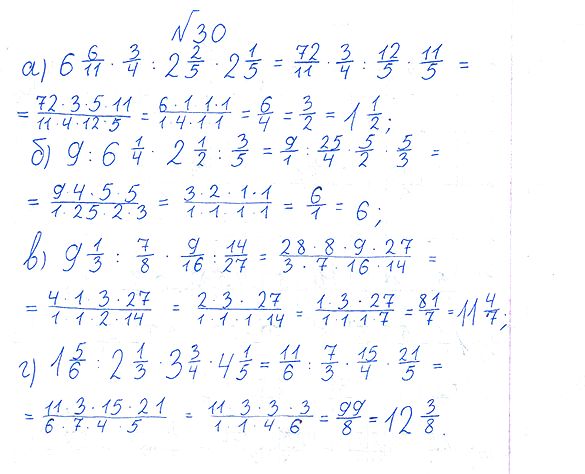 №30
а) 6 6/11 · 3/4 : 2 2/5 · 2 1/5 = 72/11 · 3/4 : 12/5 · 11/5 =
= 72·3·5·11/11·4·12·5 = 6·1 1·1/1·4·1 1 = 6/4 = 3/2 = 1 1/2;
б) 9 : 6 1/4 · 2 1/2 : 3/5 = 9/1 : 25/4 · 5/2 · 5/3 =
= 9 4·5·5/1·25·2·3 = 3·2·1·1/1·1·1·1 = 6/1 = 6;
в) 9 1/3 : 7/8 · 9/16 : 14/27 = 28·8·9·27/3·7·16·14 =
= 4·1 3·27/1 1·2·14 = 2·3·27/1·1·1 14 = 1·3·27/1·1·1·7 = 81/7 = 11 4/7;
г) 1 5/6 : 2 1/3 · 3 3/4 · 4 1/5 = 11/6 : 7/3 · 15/4 · 21/5 =
= 11·3·15·21/6·7·4·5 = 11 3·3·3/1·1·4·6 = 99/8 = 12 3/8.